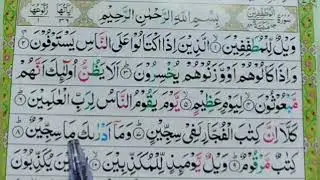 بِسْمِ اللهِ الرَّحْمٰنِ الرَّحِيْمِ
وَيْلٌ لِّلْمُطَفِّفِيْنَ ۙ﴿۱﴾ الَّذِيْنَ اِذَا اكْتَالُوْا عَلَى النَّاسِ يَسْتَوْفُوْنَ ﴿۲﴾
وَاِذَا كَالُوْهُمْ اَوْ وَّزَنُوْهُمْ يُخْسِرُوْنَ ﴿۳﴾ اَلَا يَظُنُّ اُولٰٓئِكَ اَنَّهُمْ
مَّبْعُوْثُوْنَ ﴿۴﴾ لِيَوْمٍ عَظِيْمٍ ﴿۵﴾ يَّوْمَ يَقُوْمُ النَّاسُ لِرَبِّ الْعٰلَمِيْنَ ﴿۶﴾
كَلَّاۤ اِنَّ كِتٰبَ الْفُجَّارِ لَفِيْ سِجِّيْنٍ ﴿۷﴾ وَمَاۤ اَدْرٰىكَ مَا سِجِّيْنٌ ﴿۸﴾
كِتٰبٌ مَّرْقُوْمٌ ﴿۹﴾ وَيْلٌ يَّوْمَئِذٍ لِّلْمُكَذِّبِيْنَ ﴿۱۰﴾ الَّذِيْنَ يُكَذِّبُوْنَ